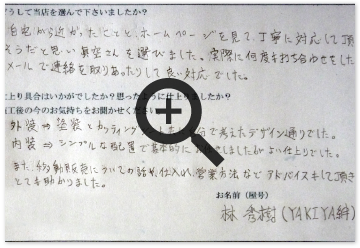 どうして当店を選んで下さいましたか?
自宅から近かったことと、ホームページを見て、丁寧に対応して頂
そうだと思い 真空さんを選びました。実際に何度も打ち合わせをした
メールで連絡を取りあったりして良い対応でした。
上り具合はいかがでしたか?思ったように仕上りましたか?
工後の今のお気持ちをお聞かせください。
外装 ⇒ 塗装とカッティング 自分で考えたデザイン通りでした。
内装 ⇒ シンプルな配置で基本的に お任せしましたがよい仕上りでした。
また、移動販売についての話や、仕入れ、営業方法など アドバイスして頂き
とても助かりました。
お名前(屋号)
林 秀樹 (YAKIYA絆)